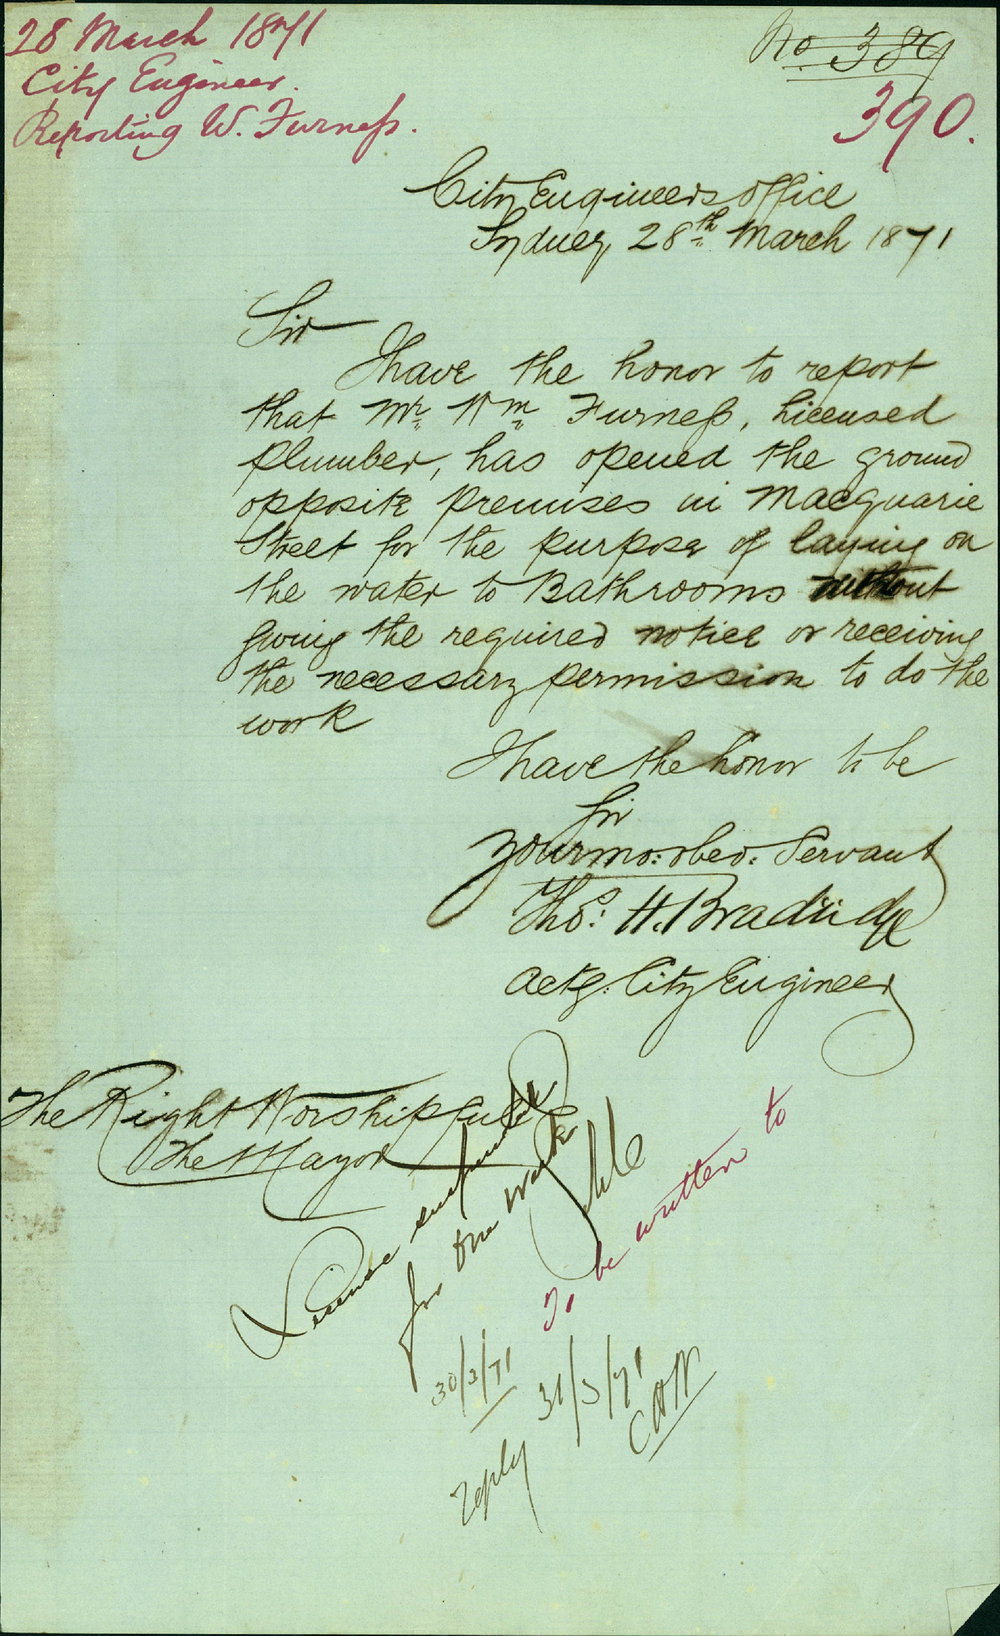 28 March 1871
City Engineer.
Reporting W. Furness.
No. 389
390.
City Engineers Office
Sydney, 28th March 1871
Sir
I have the honor to report
that Mr. Wm. Furness, Licensed
Plumber, has opened the ground
opposite premises in Macquarie
Street for the purpose of laying on
the water to Bathrooms without
giving the required notice or receiving
the necessary permission to do the
work
I have the honor to be
Sir
Your mo: obed: Servant
Thos: H. Bradridge
Actg: City Engineer
The Right Worshipful
The Mayor
License suspended
for one week
30/3/71
To be written to
31/3/71
CHW
reply